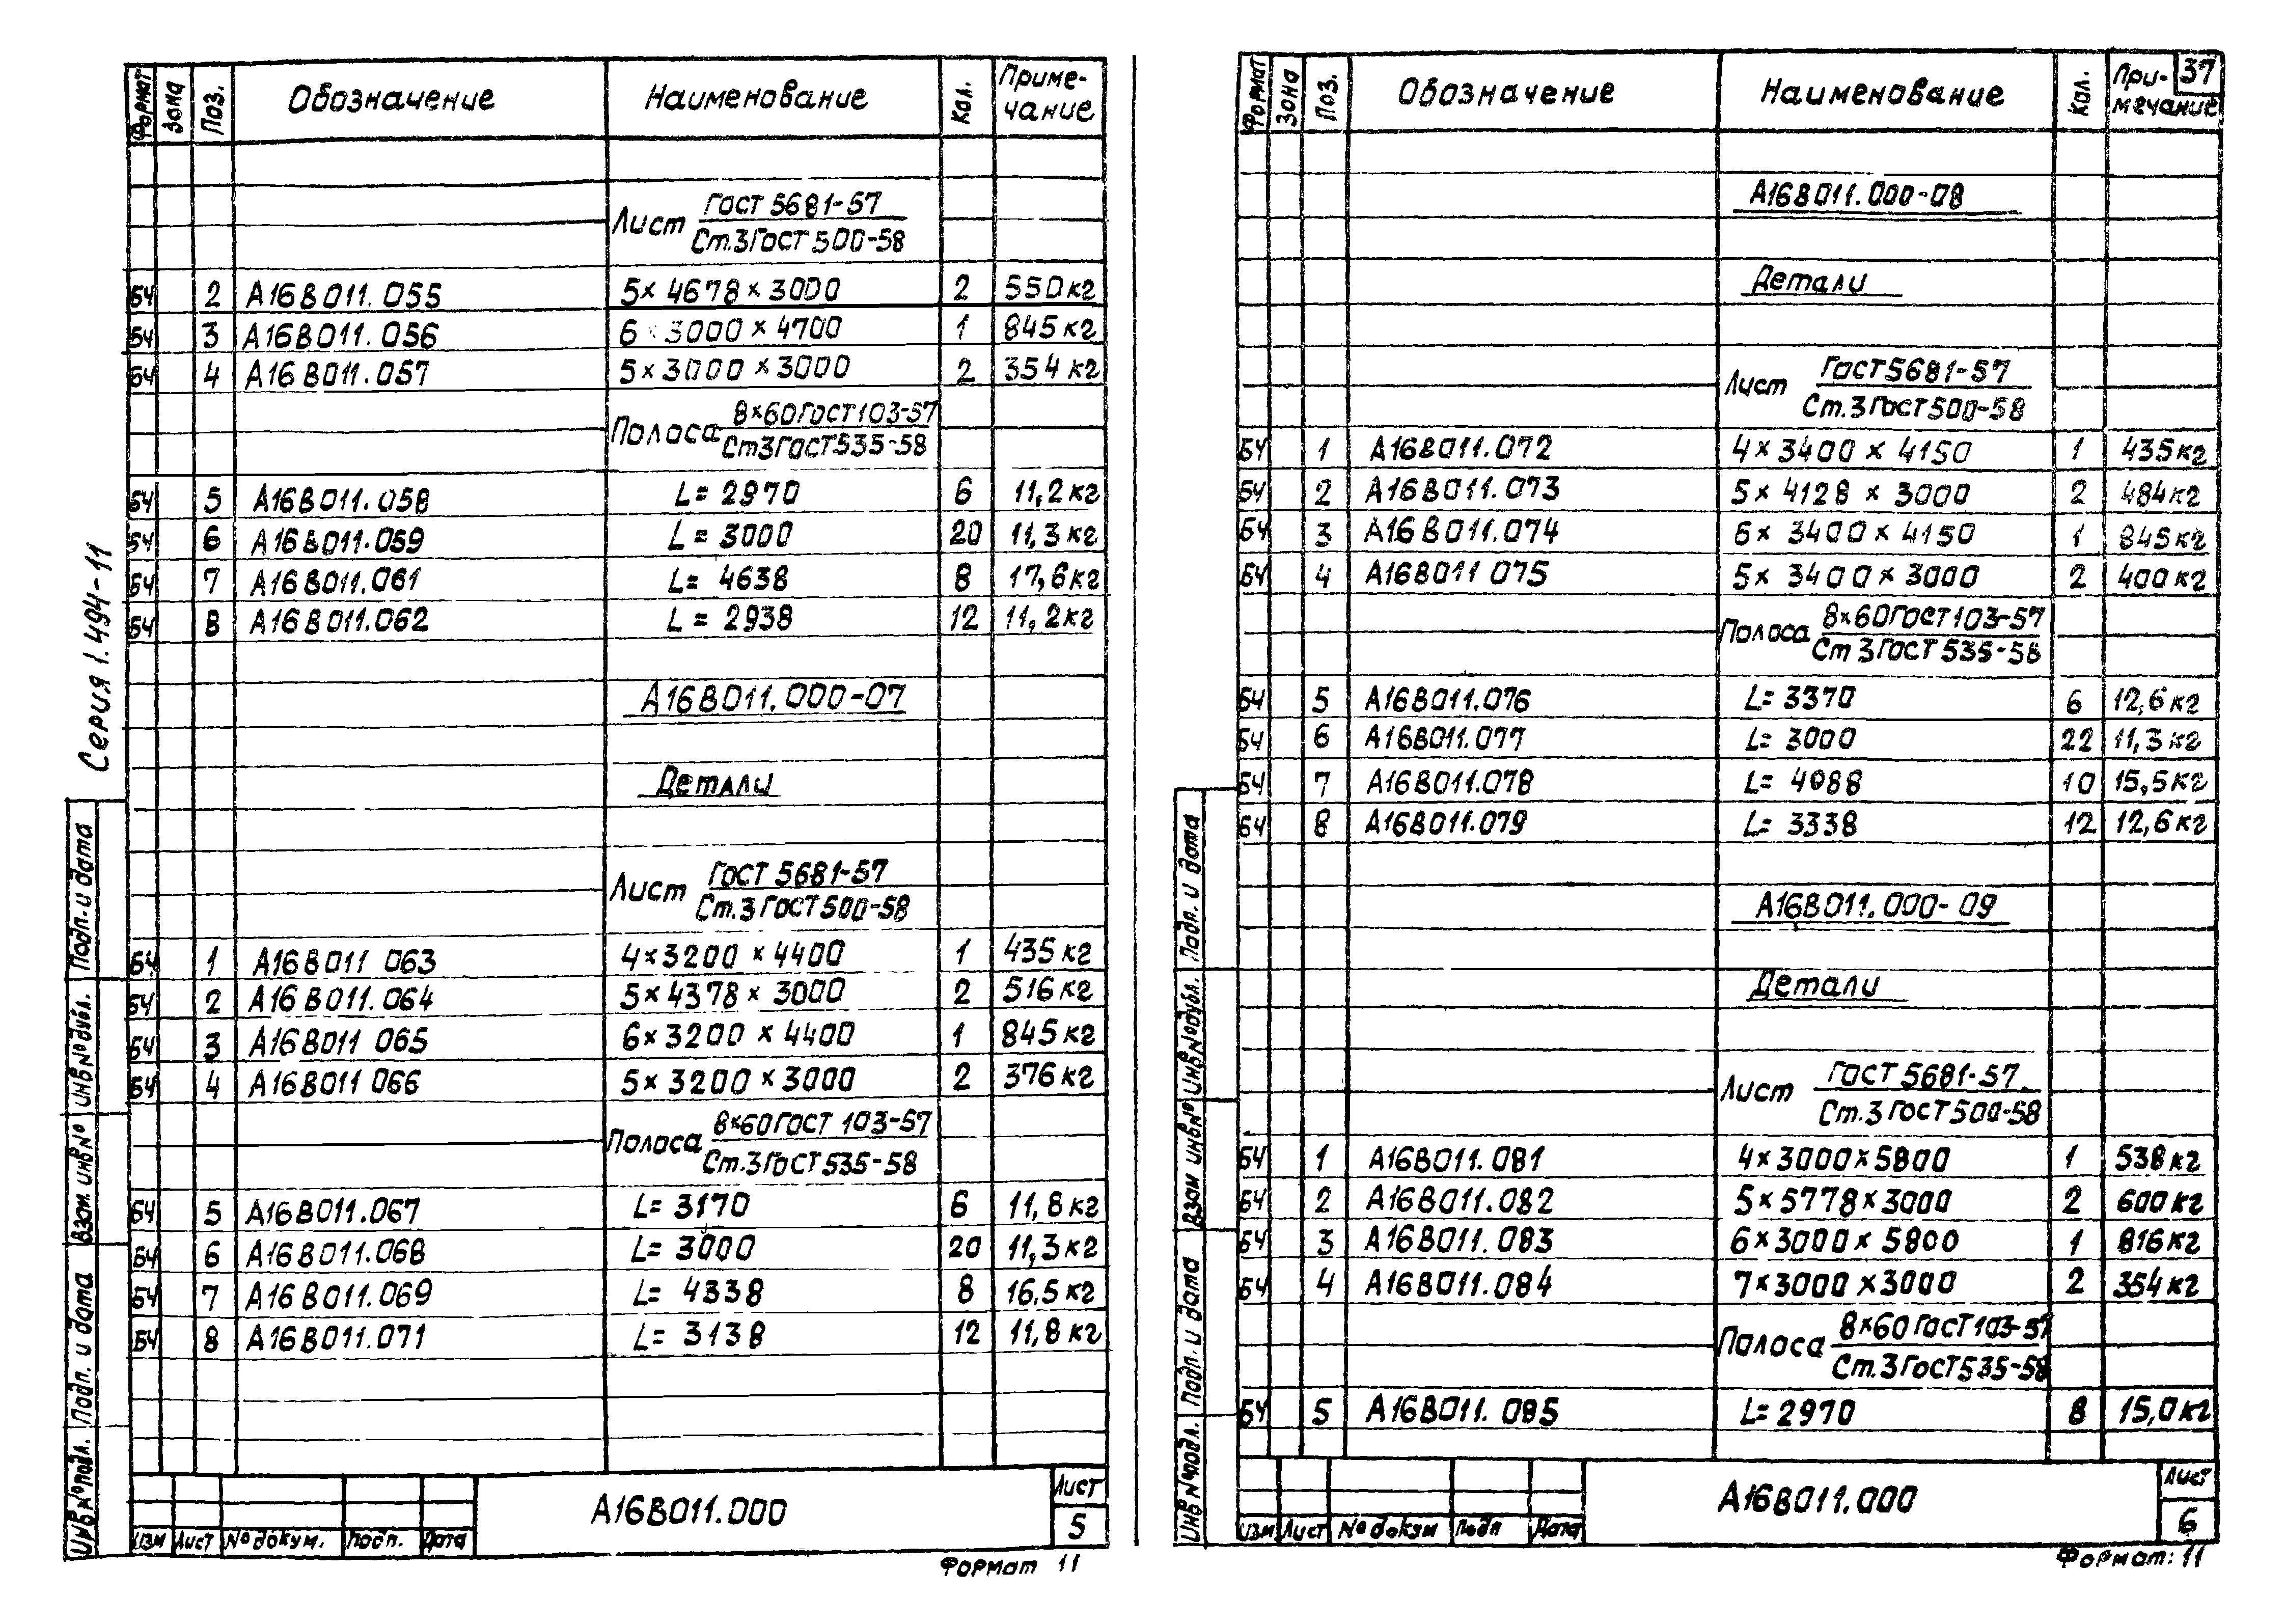 Формат Зона Поз. Обозначение Наименование Кол. Приме-
чание
Лист ГОСТ 5681-57
Ст.3 ГОСТ 500-58
БЧ 2 А16В011.055 5×4678×3000 2 550кг
БЧ 3 А16В011.056 6×3000×4700 1 845кг
БЧ 4 А16В011.057 5×3000×3000 2 354кг
Полоса 8×60 ГОСТ 103-57
Ст3 ГОСТ 535-58
БЧ 5 А16В011.058 L= 2970 6 11,2кг
БЧ 6 А16В011.059 L= 3000 20 11,3кг
БЧ 7 А16В011.061 L= 4638 8 17,6кг
БЧ 8 А16В011.062 L= 2938 12 11,2кг
А16В011.000-07
Детали
Лист ГОСТ 5681-57
Ст.3 ГОСТ 500-58
БЧ 1 А16В011 063 4×3200×4400 1 435кг
БЧ 2 А16В011.064 5×4378×3000 2 516кг
БЧ 3 А16В011 065 6×3200×4400 1 845кг
БЧ 4 А16В011 066 5×3200×3000 2 376кг
Полоса 8×60 ГОСТ 103-57
Ст.3 ГОСТ 535-58
БЧ 5 А16В011.067 L= 3170 6 11,8кг
БЧ 6 А16В011.068 L= 3000 20 11,3кг
БЧ 7 А16В011.069 L= 4338 8 16,5кг
БЧ 8 А16В011.071 L= 3138 12 11,8кг
Серия 1.494-11
Подп. и дата
Инв № дубл.
Взам. инв №
Подп. и дата
Инв № подл.
Изм Лист № докум. Подп. Дата
А16В011.000
Лист
5
Формат 11
37
Формат Зона Поз. Обозначение Наименование Кол. При-
мечание
А16В011.000-08
Детали
Лист ГОСТ 5681-57
Ст.3 ГОСТ 500-58
БЧ 1 А16В011.072 4×3400×4150 1 435кг
БЧ 2 А16В011.073 5×4128×3000 2 484кг
БЧ 3 А16В011.074 6×3400×4150 1 845кг
БЧ 4 А16В011 075 5×3400×3000 2 400кг
Полоса 8×60 ГОСТ 103-57
Ст 3 ГОСТ 535-58
БЧ 5 А16В011.076 L= 3370 6 12,6кг
БЧ 6 А16В011.077 L= 3000 22 11,3кг
БЧ 7 А16В011.078 L= 4088 10 15,5кг
БЧ 8 А16В011.079 L= 3338 12 12,6кг
А16В011.000-09
Детали
Лист ГОСТ 5681-57
Ст.3 ГОСТ 500-58
БЧ 1 А16В011.081 4×3000×5800 1 538кг
БЧ 2 А16В011.082 5×5778×3000 2 600кг
БЧ 3 А16В011.083 6×3000×5800 1 816кг
БЧ 4 А16В011.084 7×3000×3000 2 354кг
Полоса 8×60 ГОСТ 103-57
Ст.3 ГОСТ 535-58
БЧ 5 А16В011.085 L=2970 8 15,0кг
Подп. и дата
Инв № дубл.
Взам инв №
Подп. и дата
Инв № подл.
Изм Лист № докум Подп Дата
А16В011.000
Лист
6
Формат: 11